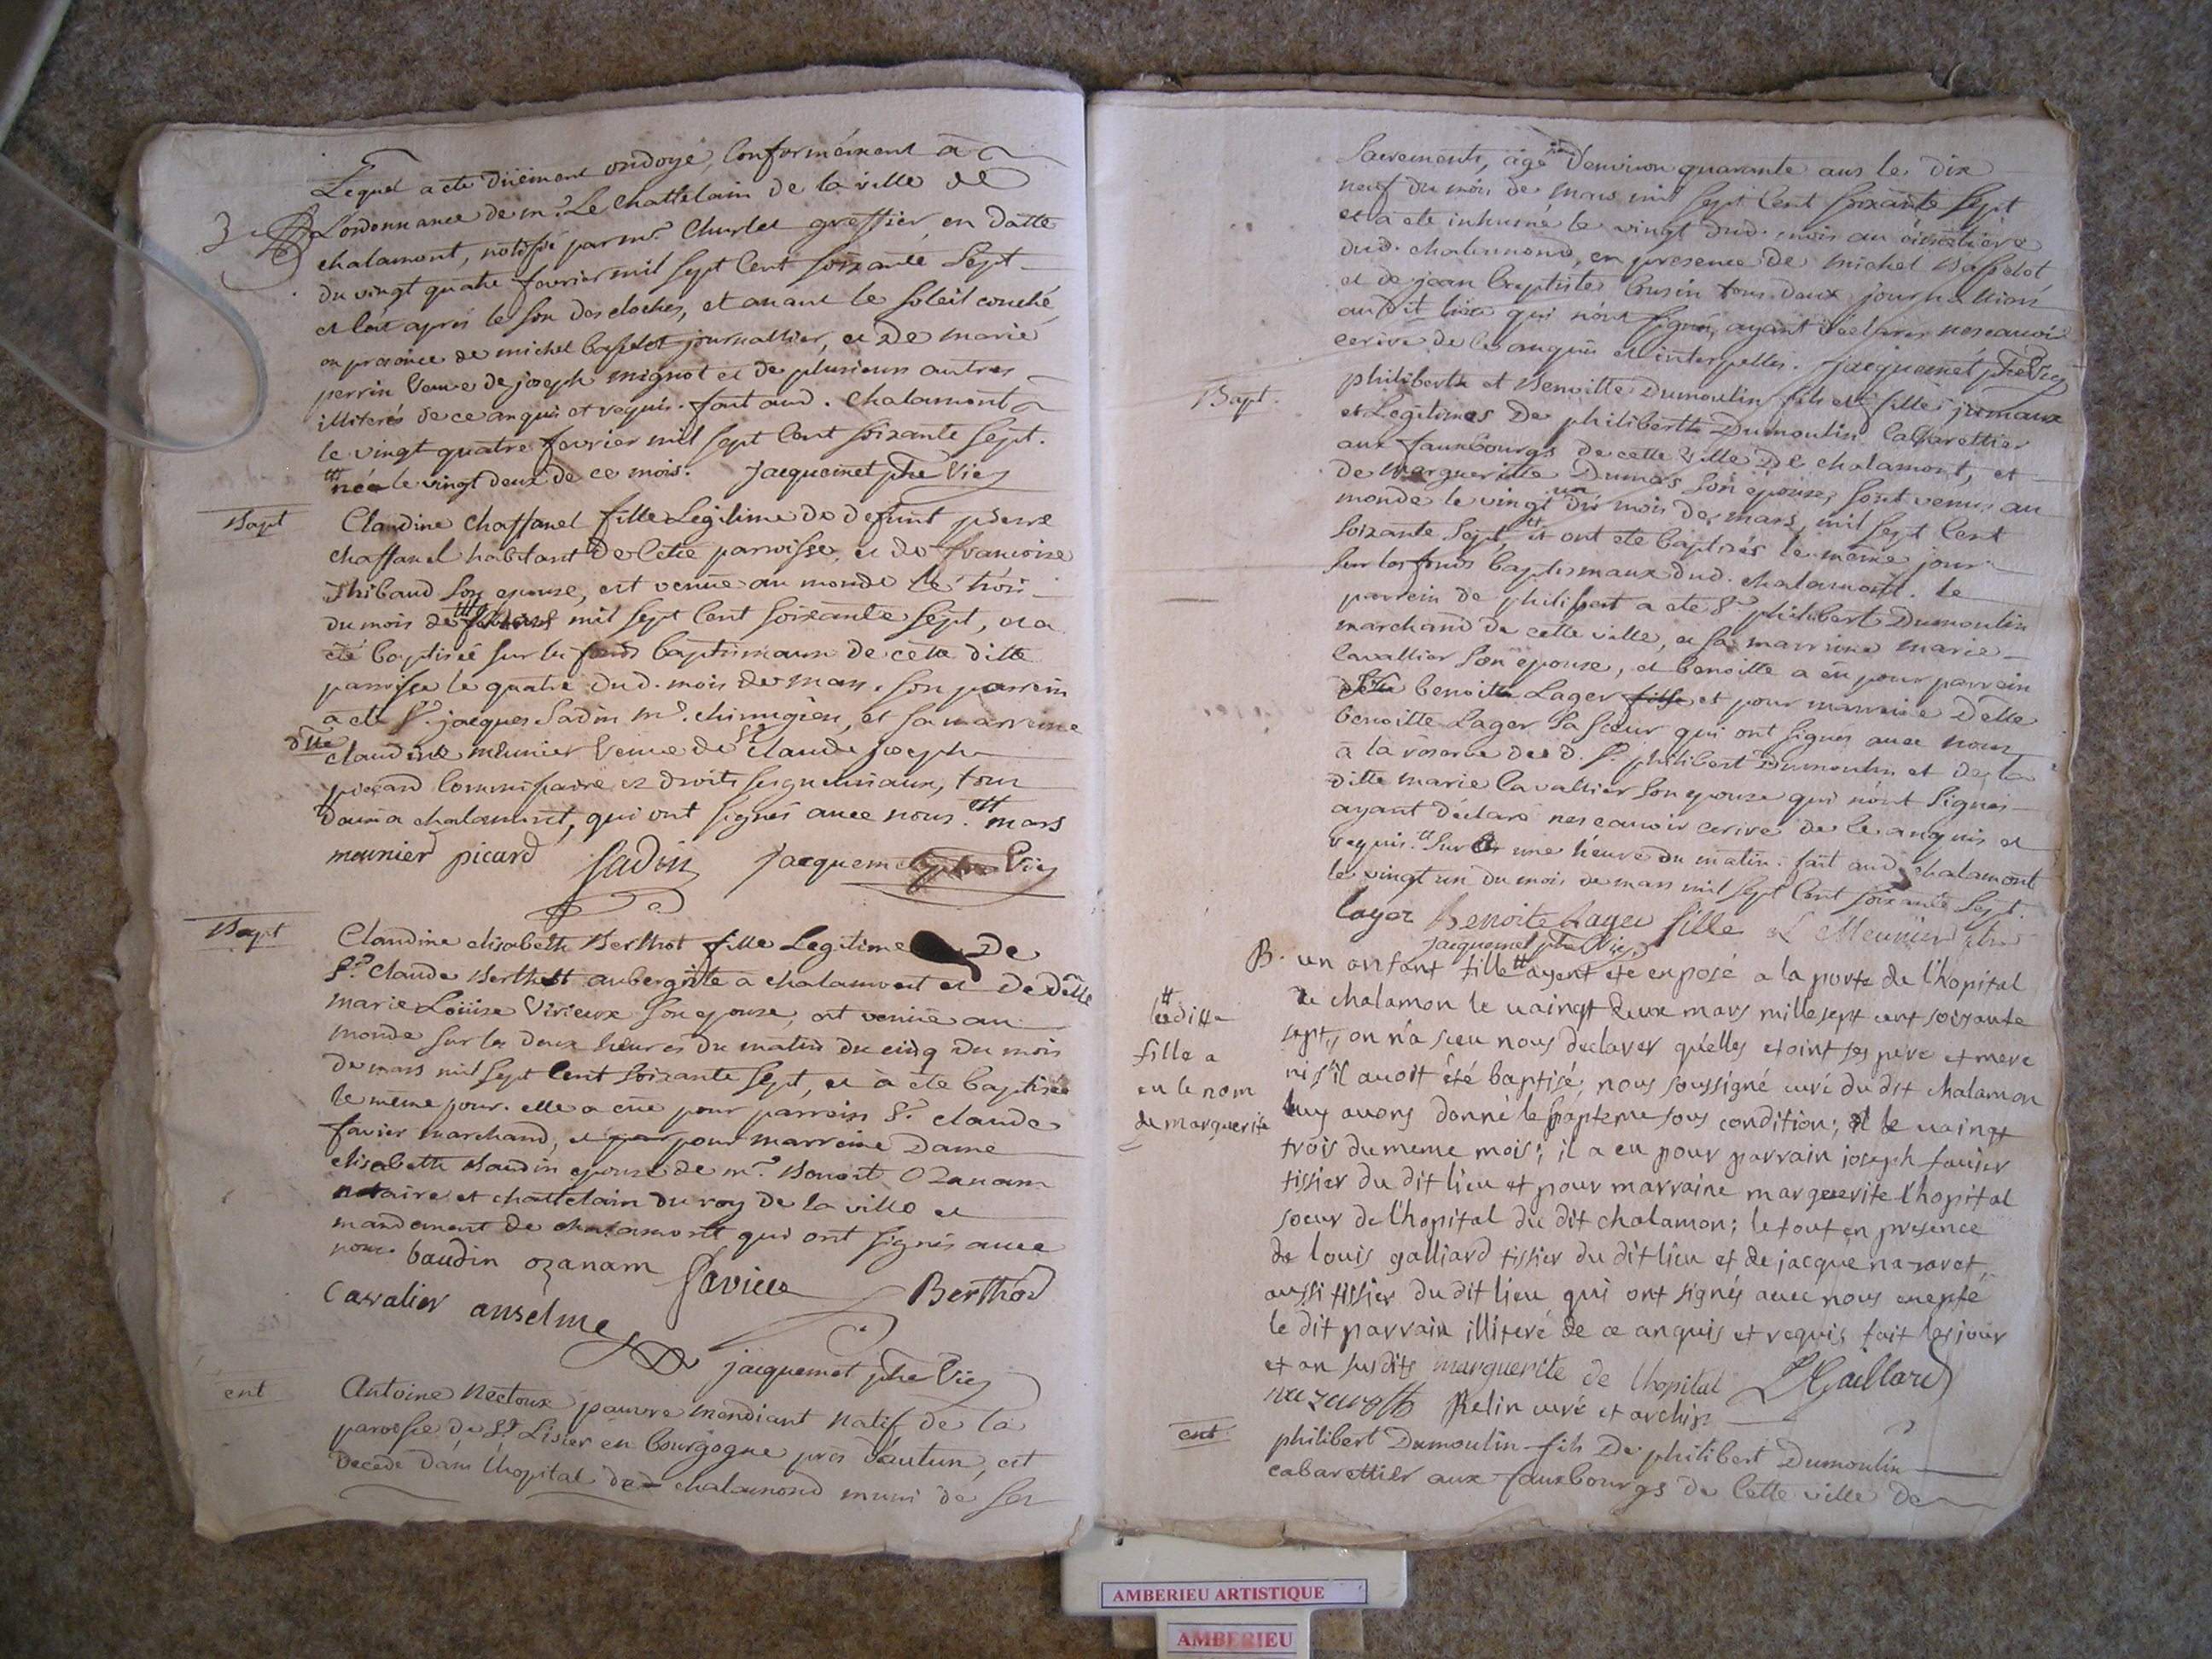 Lequel a eté düement ondoyé, Conformément a
L'ordonnance de mr. Le Chattelain de la ville de
chalamont, notifié par mr. Churlet greffier, en datte
du vingt quatre fevrier mil sept Cent soixante sept
et lôit aprés le son des cloches, et avant le soleil couché,
en presence de michel basselot journallier, et de marie
perrin Veuve de joseph mignot et de plusieurs autres
illiterés de ce anquis et requis. fait aud. chalamont
le vingt quatre fevrier mil sept Cent soixante sept.
née le vingt deux de ce mois. Jacquemet ptre Vic
Bapt
Claudine Chaffanel fille Legitime de defunt pierre
chaffanel habitant de Cette parroisse, et de francoise
Thibaud son epouse, est venüe au monde le trois
du mois de mil sept Cent soixante sept, et a
eté baptisée sur les fonds baptismaux de cette ditte
parroisse le quatre dud. mois de mars. son parrein
a eté Sr. jacques Sadin md. chirugien, et sa marreine
dlle
claudine meunier Veuve de Sr claude joseph
picard Commissaire ez droits seigneuriaux, tous
deux a chalamont, qui ont signés avec nous. mars
meunier picard Sadin Jacquemet ptre Vic
Bapt
Claudine elisabeth Berthot fille Legitime de
Sr. Claude Berthot aubergiste a chalamont et de delle
marie Loüise Virieux son epouse, est venüe au
monde sur les deux heures du matin du cinq du mois
de mars mil sept Cent soixante sept, et a eté baptisée
le même jour. elle a eüe pour parrein Sr. claude
favier marchand, et par pour marreine Dame
elisabeth Baudin epouse de mr. Benoit Ozanam
notaire et chattelain du roy de la ville et
mandement de chalamont qui ont signés avec
nous. baudin ozanam favier Berthod
Cavalier anselme
jacquemet ptre Vic
ent
Antoine Nectoux pauvre mendiant natif de la
paroisse de St. Lisier en bourgogne prés d'autun, est
decedé dans l'hopital de chalamond muni de ses
Sacrements, agé d'environ quarante ans le dix
neuf du mois de mars mil sept Cent soixante sept
et a eté inhumé le vingt dud. mois au cimetiere
dud. chalamond, en presence de michel basselot
et de jean baptiste Cusin tous deux journalliers
audit lieu qui n'ont signés, ayant declarés ne scavoir
ecrire de ce anquis et interpellés. Jacquemet ptre Vic
Bapt.
philiberth et Benoitte Dumoulin fils et fille jumaux
et Legitimes de philiberth Dumoulin Cabarettier
aux fauxbourgs de cette Ville de chalamont, et
de Marguerite Dumas son epouse, sont venus au
monde le vingt un du mois de mars mil sept Cent
soixante sept et ont eté baptisés le même jour
sur les fonds baptismaux dud. chalamont. le
parrein de philibert a eté Sr. philibert Dumoulin
marchand de cette ville, et sa marreine marie
Cavallier son epouse, et benoitte a eü pour parrein
benoitte Lager fille et pour marreine Delle
benoitte Lager sa soeur qui ont signés avec nous
à la réserve dud. Sr. philibert Dumoulin et de la
ditte marie Cavallier son epouse qui n'ont signés
ayant declaré ne scavoir ecrire de ce anquis et
requis. sur une heure du matin. fait aud. chalamont
le vingt un du mois de mars mil sept Cent soixante sept.
lager Benoite Lager fille L Meunier
Jacquemet ptre Vic
B. un anfant fille ayent eté exposé a la porte de l'hopital
de chalamon le vaingt deux mars mille sept cent soixante
sept, on n'a sceu nous declarer qu'elles etoint ses pere et mere
ni s'il avoit été baptisé, nous soussigné curé du dit chalamon
luy avons donné le bapteme sous condition; le vaingt
trois du meme mois; il a eu pour parrain joseph favier
tissier du dit lieu et pour marraine marguerite l'hopital
soeur de l'hopital du dit chalamon; le tout en presence
de louis galliard tissier du dit lieu et de jacque nazaret,
aussi tissier du dit lieu qui ont signés avec nous exepté
le dit parrain illiteré de ce anquis et requis fait les jour
et an susdits marguerite de l'hopital L Gaillard
nazareth Relin curé et archip.
laditte
fille a
eu le nom
de marguerite
ent
philibert Dumoulin fils de philibert Dumoulin
cabarettier aux fauxbourgs de Cette ville de
AMBERIEU ARTISTIQUE
AMBERIEU